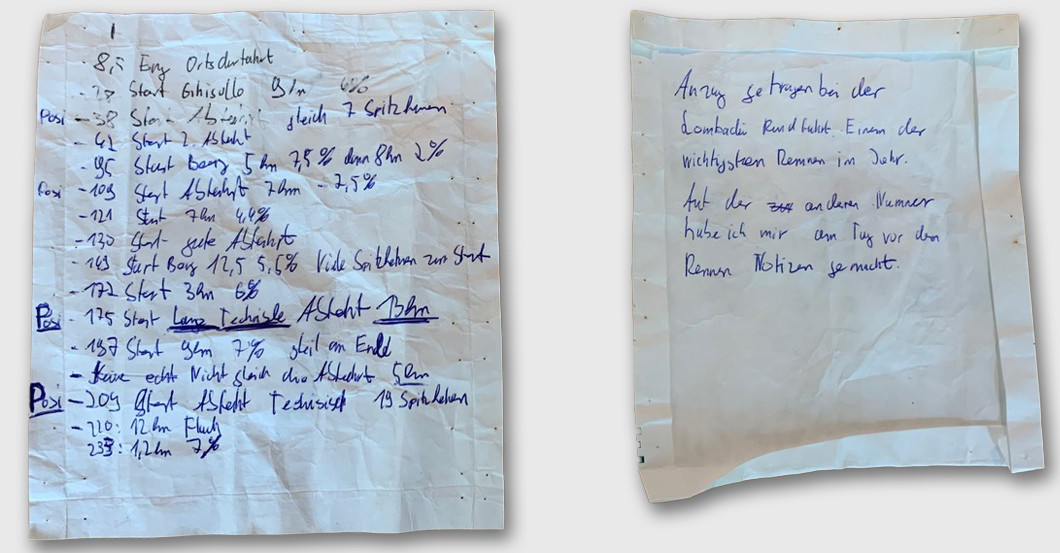 8,5 Eng Ortsdurfahrt
Start Ghisallo 9km 4%
Posi - 38 Start Abfahrt gleich 7 Spitzkehren
- 42 Start 2. Abfahrt
- 95 Start Berg 5 km 7,5% dann 8km 2%
Posi - 109 Start Abfahrt 7km - 2,5%
- 121 Start 7km 4,4%
- 130 Start gute Abfahrt
- 149 Start Berg 12,5 5,5% Viele Spitzkehren zum Start
- 172 Start 3km 6%
Posi - 175 Start Lange Technische Abfahrt 13km
- 197 Start 9km 7% steil am Ende
- Keine echt Nicht gleich die Abfahrt 5km
Posi - 209 Start Abfahrt Technisch 19 Spitzkehren
- 220: 12km Flach
233: 1,2km 7%
Anzug getragen bei der
Lombadei Rundfahrt. Einem der
wichtigsten Rennen im Jahr.
Auf der anderen Nummer
habe ich mir am Tag vor dem
Rennen Notizen gemacht.